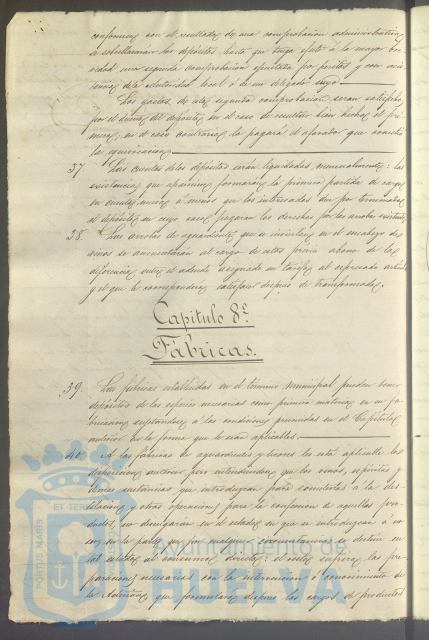 conformes con el resultado de una comprobación administrativa,
se sobrellenarán los depósitos hasta que tenga efecto á la mayor bre
vedad una segunda comprobación ejecutada por peritos y con asis
tencia de la Autoridad local ó de un delegado suyo
Los gastos de esta segunda comprobación serán satisfechos
por el dueño del depósito en el caso de resultar bien hecha la pri
mera; en el caso contrario la pagará el aforador que cometió
la equivocación
37. Las cuentas de los depósitos serán liquidadas, anualmente: las
existencias que aparezcan formarán la primera partida de cargo
en cuenta nueva á menos que los interesados den por terminado
el depósito en cuyo caso pagarán los derechos por las arrobas existentes
38. Las arrobas de aguardiente que se inviertan en el encabezo de
vinos se aumentarán al cargo de estos previo abono de la
diferencia entre el adeudo asignado en tarifa al expresado artículo
y el que le correspondería satisfacer despues de transformados.
Capitulo 8º
Fábricas.
39. Las fábricas establecidas en el término municipal pueden tener
depósitos de las especies necesarias como primeras materias en su fa
bricación, sujetandose á las condiciones prevenidas en el Capítulo
anterior en la forma que le sean aplicables.
40. A las fábricas de aguardientes y licores les está aplicable las
disposiciones anteriores pero entendiendose que los vinos, espíritus y
demás sustancias que introduzcan para someterlas á la des
tilación y otras operaciones para la confección de aquellos pro
ductos, no devengarán en el estado en que se introduzcan á no
ser en la parte que por cualquier circunstancia se destine en
tal estado al consumo directo:
paraciones necesarias con la intervención ó conocimiento de
la Administración que formulará despues los cargos de productos
ET TERRÆ
PORTUS MARIS
Ayuntamiento de
HUELVA